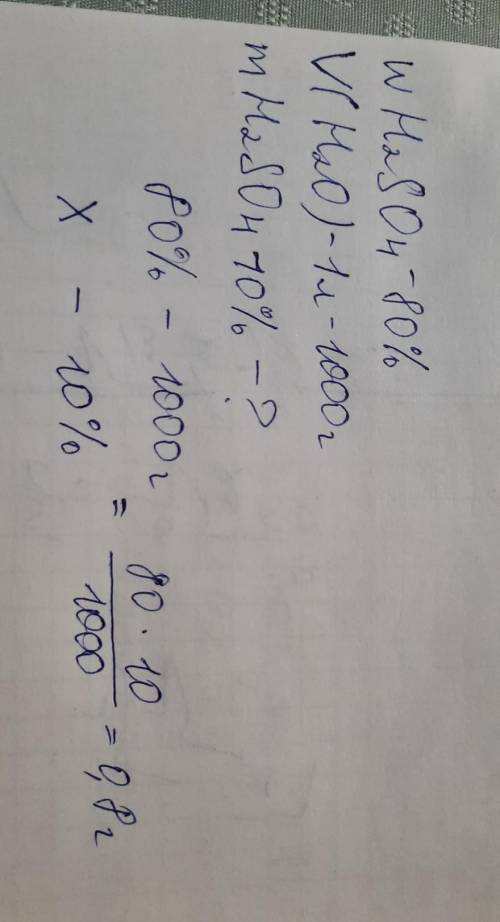 w H₂SO₄ - 80%
V(H₂O) - 1л - 1000г
m H₂SO₄ 10% - ?
80% - 1000г
x - 10% = 80 · 10 / 1000 = 0,8г